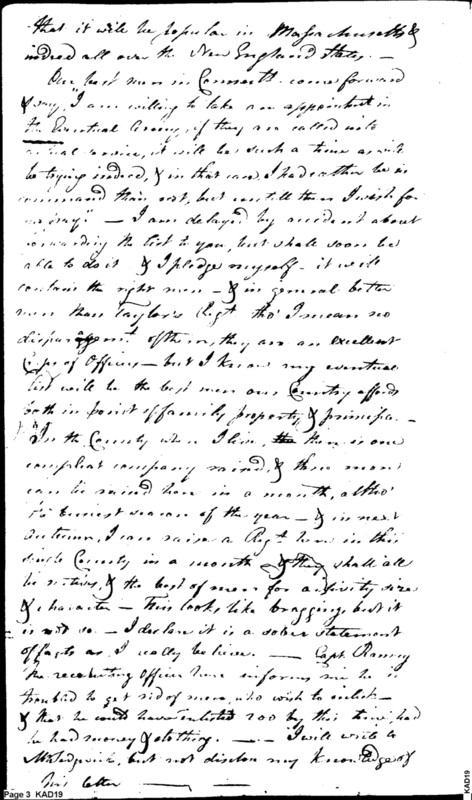 that it will be popular in Massachusetts &
indeed all over the New England States. —
Our best men in Connectt. come forward
& say, "I am willing to take an appointment in
the Eventual Army, if they are called into
actual service, it will be such a time as will
be trying indeed, & in that case, I had rather be in
command than not, but untill then I wish for
no pay." — I am delayed by accident about
forwarding the list to you, but shall soon be
able to do it & I pledge myself it will
contain the right men — & in general better
men than Taylor's Regt tho' I mean no
disparagemt. of them, they are an excellent
Corps of Officers — but I know my eventual
list will be the best men our Country affords
both in point of family, property, & principle. —
In the County where I live, there is one
compleat company raised, & three more
can be raised here in a month, altho'
the busiest season of the year — & in next
Autumn, I can raise a Regt. here in this
single County in a month — & they shall all
be natives, & the best of men for activity size
& character — This looks like bragging, but it
is not so. — I declare it is a sober statement
of facts as I really believe. — Capt. Ranney
the recruiting Officer here informs me he is
troubled to get rid of men, who wish to enlist —
& that he could have inlisted 200 by this time, had
he had money & clothing. — — I will write to
Mr. Sedgwick, but not disclose my knowledge of
his letter —
Page 3 KAD19
KAD19